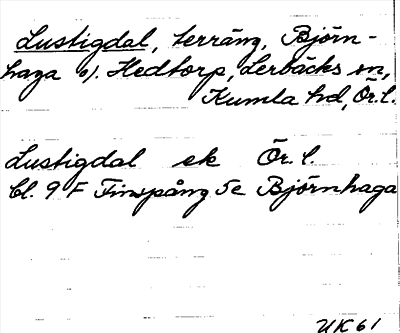 Lustigdal, terräng, Björn-
haga o). Hedtorp, Lerbäcks sn,
Kumla hd, Ör.l.
Lustigdal ek Ör.l.
bl. 9 F Finspång 5e Björnhaga
UK61